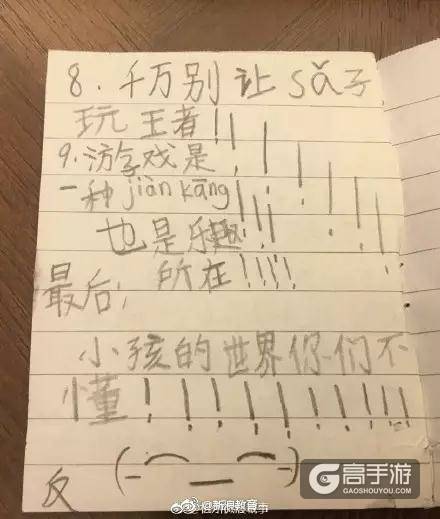 8.千万别让sǎ子
玩王者!!!!!!!!!
9.游戏是
一种jiàn kāng
也是乐趣!!!
所在!!!!!
最后;
小孩的世界你们不
懂!!!!!!!!!!!
反
高手游
GAOSHOUYOU.COM